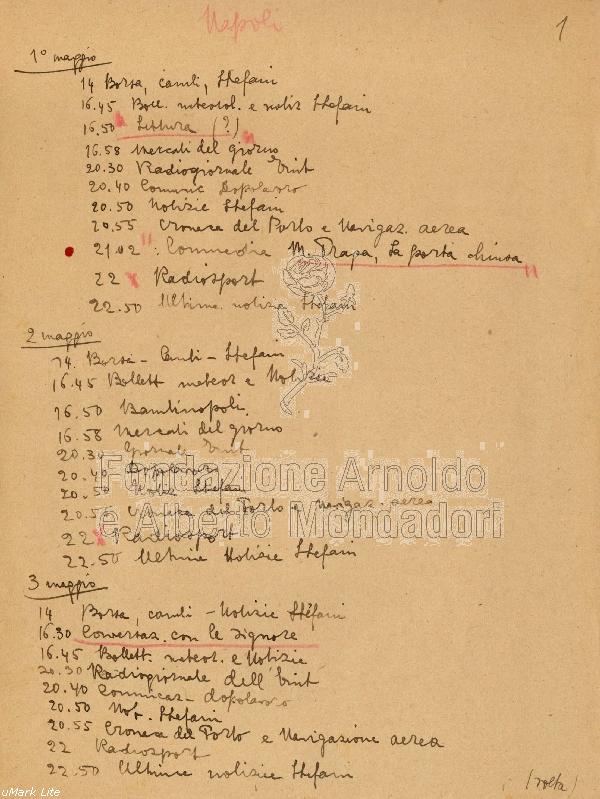 Napoli
1
1° maggio
14 Borsa, cambi, Stefani
16.45 Boll. meteorol. e notiz Stefani
16.50 "Lettura (?)"
16.58 Mercati del giorno
20.30 Radiogiornale Enit
20.40 Comunic Dopolavoro
20.50 Notizie Stefani
20.55 Cronaca del Porto e Navigaz. aerea
21.02 ": Commedia M. Trapa, La porta chiusa"
22 Radiosport
22.50 Ultime notizie Stefani
2 maggio
14. Borsa - Cambi - Stefani
16.45 Bollett meteor e Notizie
16.50 Bambinopoli
16.58 Mercati del giorno
20.30 Giornale Enit
20.40 Dopolavoro
20.50 Notiz Stefani
20.55 Cronaca del Porto e navigaz. aerea
22 Radiosport
22.50 Ultime Notizie Stefani
Fondazione Arnoldo
e Alberto Mondadori
3 maggio
14 Borsa, cambi - Notizie Stefani
16.30 Conversaz. con le Signore
16.45 Bollett. meteor. e Notizie
20.30 Radiogiornale dell'Enit
20.40 Comunicaz- dopolavoro
20.50 Not. Stefani
20.55 Cronaca del Porto e Navigazione aerea
22 Radiosport
22.50 Ultime notizie Stefani
(volta)
uMark Lite